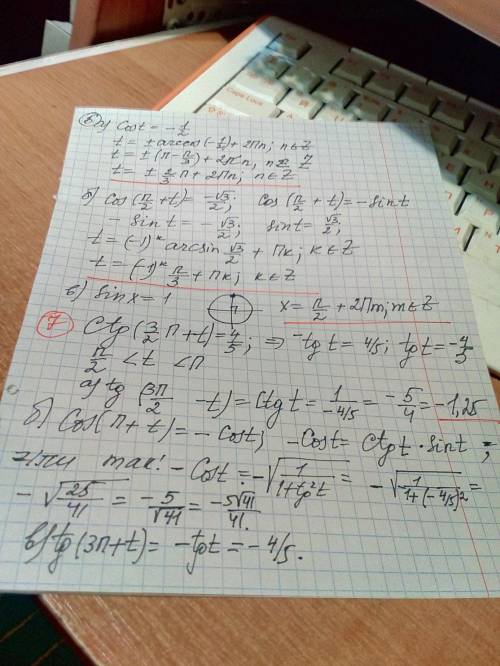 6 а) Cos t = -1/2
t = ± arccos(-1/2) + 2Пn; n∈Z
t = ± (П - П/3) + 2Пn, n∈Z
t = ± 2/3 П + 2Пn; n∈Z
б) cos(П/2 + t) = -√3/2; cos(П/2 + t) = -sin t
- sin t = -√3/2; sin t = √3/2;
t = (-1)^к arcsin √3/2 + Пк; к∈Z
t = (-1)^к П/3 + Пк; к∈Z
в) sin x = 1 x = П/2 + 2Пm; m∈Z
7 ctg(3/2 П + t) = 4/5; ⇒ -tg t = 4/5; tg t = -4/5
П/2 < t < П
а) tg(3П/2 - t) = ctg t = 1/-4/5 = -5/4 = -1,25
б) Cos(П + t) = - Cos t; -Cos t = Ctg t · Sin t;
или так! - Cos t = -√(1/(1+tg²t)) = -√(1/(1+(-4/5)²)) =
- √(25/41) = -5/√41 = -5√41/41.
в) tg(3П + t) = -tg t = -4/5.